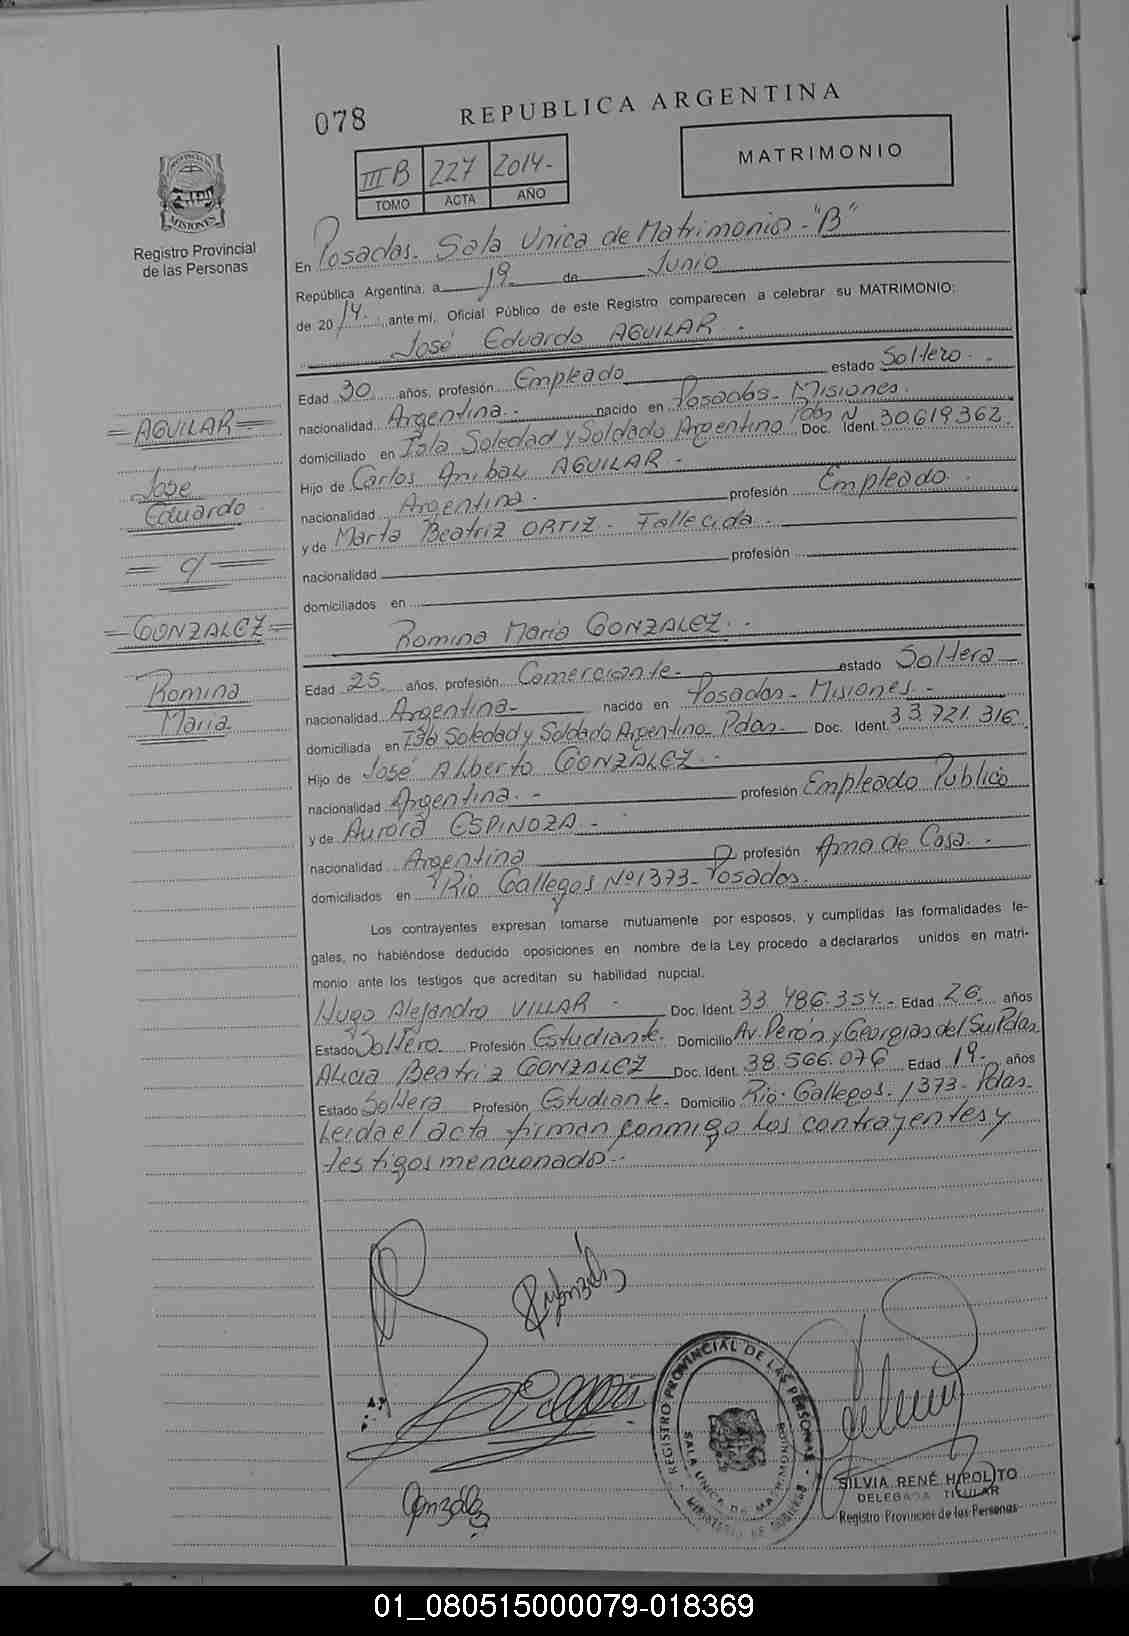 078
REPUBLICA ARGENTINA
MATRIMONIO
III B 227 2014.-
TOMO ACTA AÑO
PROVINCIA DE
MISIONES
Registro Provincial
de las Personas
En Posadas. Sala Unica de Matrimonio - "B"
República Argentina, a 19 de Junio
de 2014. ante mí, Oficial Público de este Registro comparecen a celebrar su MATRIMONIO:
José Eduardo AGUILAR.
Edad 30 años, profesión Empleado estado Soltero.-
nacionalidad Argentina.- nacido en Posadas- Misiones.
domiciliado en Isla Soledad y Soldado Argentino Pdas Doc. Ident. Nº 30.619.362.
Hijo de Carlos Anibal AGUILAR.-
nacionalidad Argentina. profesión Empleado.
y de Marta Beatriz ORTIZ - Fallecida.-
nacionalidad profesión
domiciliados en
Romina Maria GONZALEZ.-
Edad 25 años, profesión Comerciante- estado Soltera
nacionalidad Argentina- nacido en Posadas- Misiones.-
domiciliada en Isla Soledad y Soldado Argentino- Pdas. Doc. Ident. 33.721.316
Hijo de José Alberto GONZALEZ.-
nacionalidad Argentina.- profesión Empleado Publico
y de Aurora ESPINOZA.-
nacionalidad Argentina profesión Ama de Casa.-
domiciliados en Rio Gallegos Nº 1373- Posadas.
Los contrayentes expresan tomarse mutuamente por esposos, y cumplidas las formalidades le-
gales, no habiéndose deducido oposiciones en nombre de la Ley procedo a declararlos unidos en matri-
monio ante los testigos que acreditan su habilidad nupcial.
Hugo Alejandro VILLAR - Doc. Ident. 33.486.354.- Edad 26 años
Estado Soltero. Profesión Estudiante. Domicilio Av. Perón y Georgias del Sur Pdas
Alicia Beatriz GONZALEZ Doc. Ident. 38.566.076 Edad 19.- años
Estado Soltera Profesión Estudiante. Domicilio Rio Gallegos. 1373- Pdas.
Leida el acta firman conmigo los contrayentes y
testigos mencionado.-
=AGUILAR=
José
Eduardo
= c/ =
=GONZALEZ=
Romina
Maria
González
REGISTRO PROVINCIAL DE LAS PERSONAS
SALA UNICA DE MATRIMONIOS
SILVIA RENÉ HIPOLITO
DELEGADA TITULAR
Registro Provincial de las Personas
01_080515000079-018369